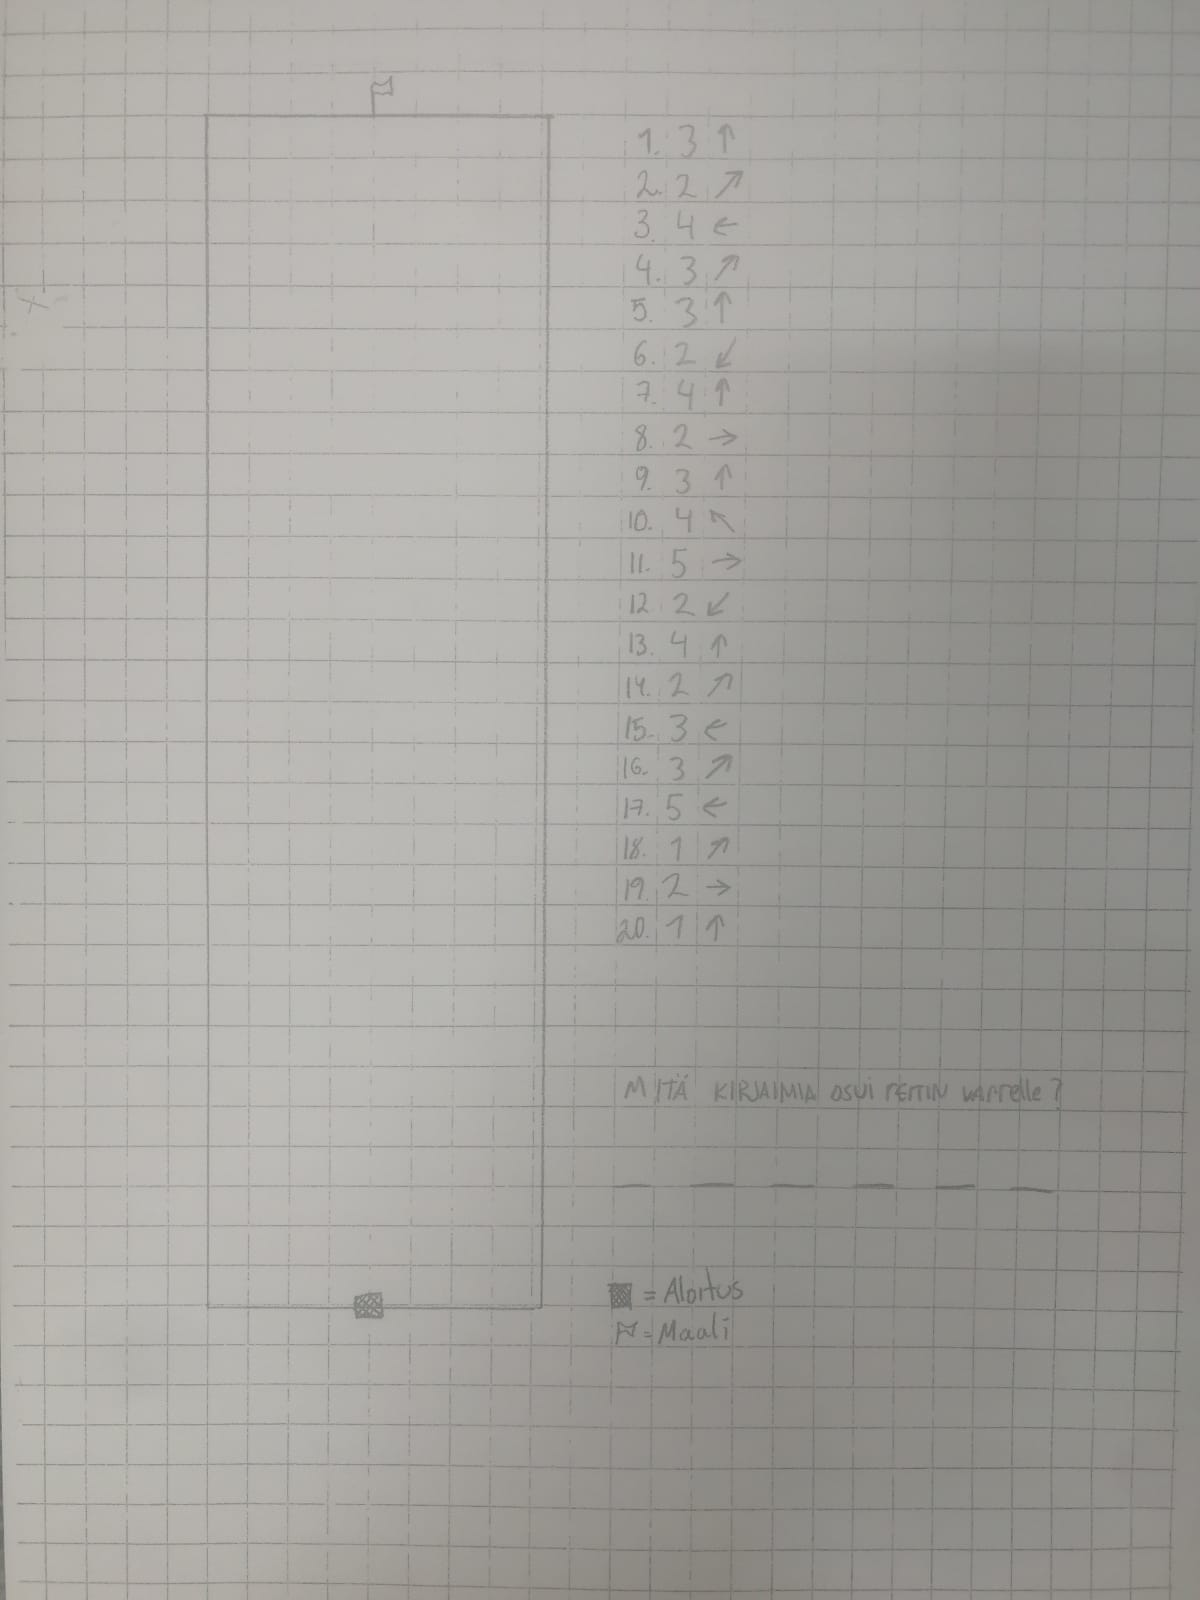 1. 3 ↑
2. 2 ↗
3. 4 ←
4. 3 ↗
5. 3 ↑
6. 2 ↙
7. 4 ↑
8. 2 →
9. 3 ↑
10. 4 ↖
11. 5 →
12 2 ↙
13. 4 ↑
14. 2 ↗
15. 3 ←
16. 3 ↗
17. 5 ←
18. 1 ↗
19. 2 →
20. 1 ↑
MITÄ KIRJAIMIA OSUI REITIN VARRelle?
= Aloitus
= Maali
X